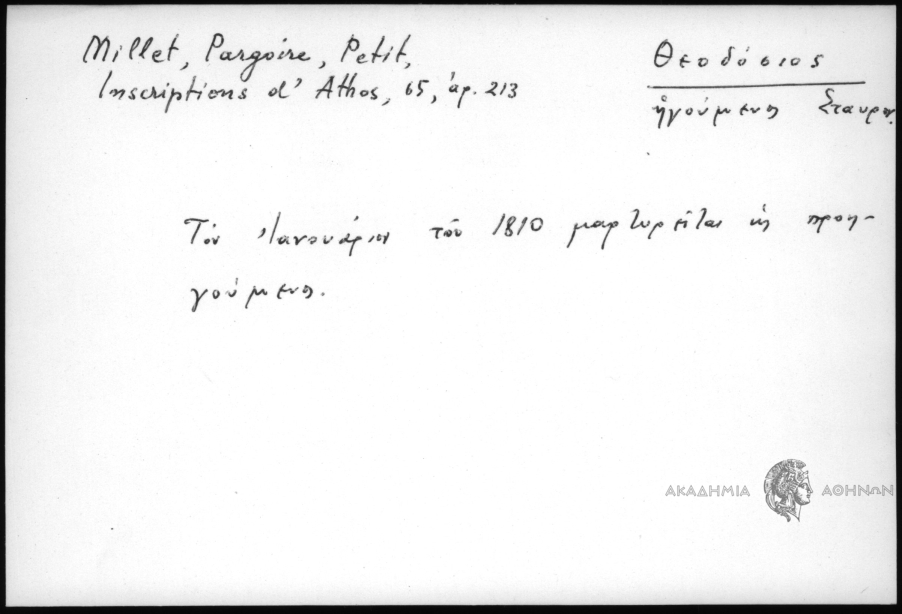 Millet, Pargoire, Petit,
Inscriptions d' Athos, 65, ἀρ. 213
Θεοδόσιος
ἡγούμενος Σταυρον.
Τὸν Ἰανουάριον τοῦ 1810 μαρτυρεῖται ὡς προη-
γούμενος.
ΑΚΑΔΗΜΙΑ ΑΘΗΝΩΝ